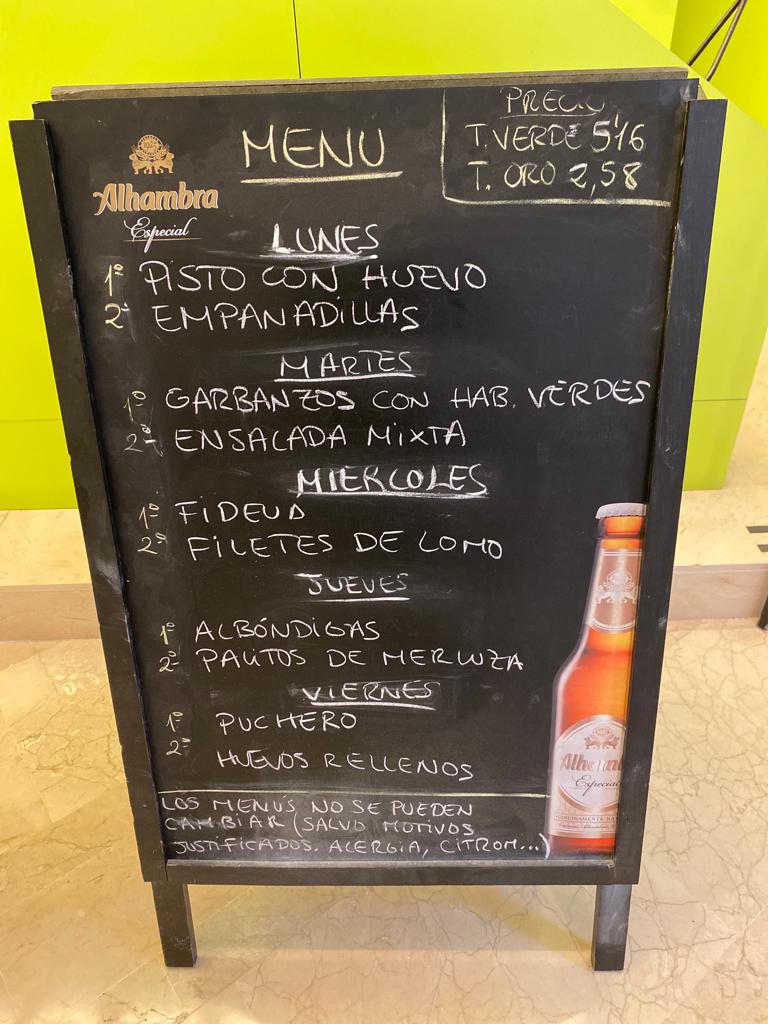 PRECIO
T. VERDE 5'16
T. ORO 2,58
MENU
Alhambra
Especial
LUNES
1º PISTO CON HUEVO
2º EMPANADILLAS
MARTES
1º GARBANZOS CON HAB. VERDES
2º ENSALADA MIXTA
MIERCOLES
1º FIDEUÁ
2º FILETES DE LOMO
JUEVES
1º ALBÓNDIGAS
2º PALITOS DE MERLUZA
VIERNES
1º PUCHERO
2º HUEVOS RELLENOS
LOS MENÚS NO SE PUEDEN
CAMBIAR (SALVO MOTIVOS
JUSTIFICADOS. ALERGIA, CITROM...)
Alhambra
Especial